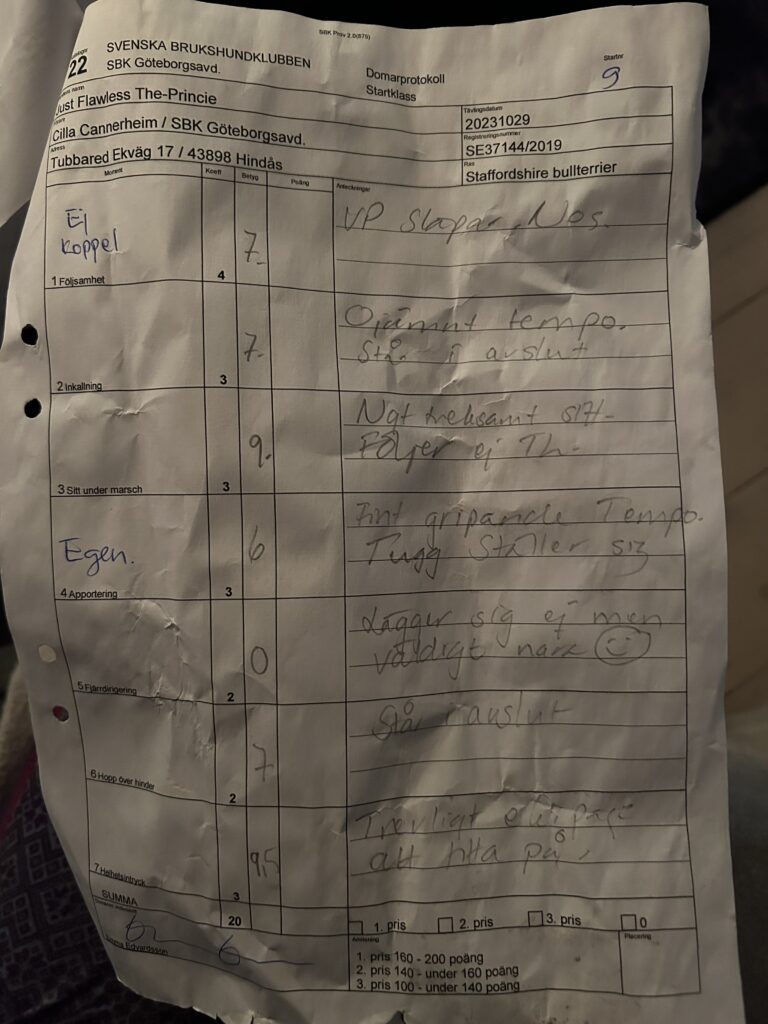 SBK Prov 2.0(875)
22
SVENSKA BRUKSHUNDKLUBBEN
SBK Göteborgsavd.
Domarprotokoll
Startklass
Startnr
9
Just Flawless The-Princie
Cilla Cannerheim / SBK Göteborgsavd.
Adress
Tubbared Ekväg 17 / 43898 Hindås
Tävlingsdatum
20231029
Registreringsnummer
SE37144/2019
Ras
Staffordshire bullterrier
Moment Koeff Betyg Poäng Anteckningar
Ej
koppel
1 Följsamhet 4 7-
VP Släpar, Nos.
2 Inkallning 3 7-
Ojämnt tempo.
Står i avslut
3 Sitt under marsch 3 9.
Ngt tveksamt sitt-
Följer ej Th-
Egen.
4 Apportering 3 6
Fint gripande Tempo.
Tugg Ställer sig
5 Fjärrdirigering 2 0
Lägger sig ej men
väldigt nära
6 Hopp över hinder 2 7
Står i avslut
7 Helhetsintryck 3 9,5
Trevligt ekipage
att titta på.
SUMMA 20
1. pris 2. pris 3. pris 0
Edvardsson
Anmärkning
1. pris 160 - 200 poäng
2. pris 140 - under 160 poäng
3. pris 100 - under 140 poäng
Placering